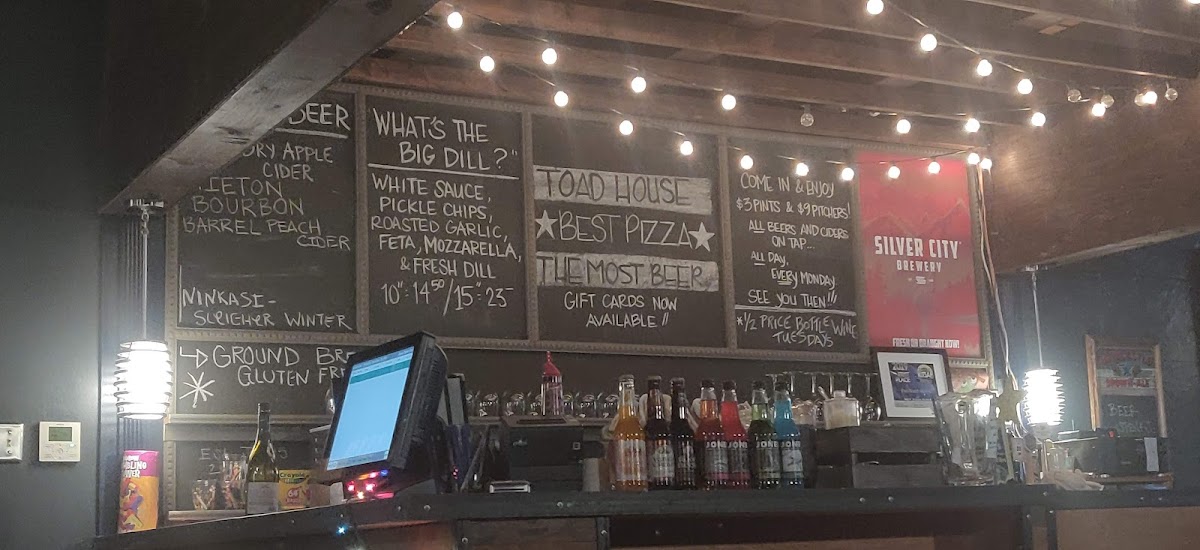 BEER
DRY APPLE
CIDER
TIETON
BOURBON
BARREL PEACH
CIDER
NINKASI-
SLEIGHER WINTER
GROUND
GLUTEN
WHAT'S THE
BIG DILL?"
WHITE SAUCE,
PICKLE CHIPS,
ROASTED GARLIC,
FETA, MOZZARELLA,
& FRESH DILL
10": 14⁵⁰/15": 23-
TOAD HOUSE
★BEST PIZZA★
THE MOST BEER
GIFT CARDS NOW
AVAILABLE!!
COME IN & ENJOY
$3 PINTS & $9 PITCHERS!
ALL BEERS AND CIDERS
ON TAP...
ALL DAY,
EVERY MONDAY
SEE YOU THEN!!!
*½ PRICE BOTTLE WINE
TUESDAYS
SILVER CITY
BREWERY
FRESH ON DRAUGHT NOW!
Crayola
64
JONES
JONES
JONES
JONES
BEER